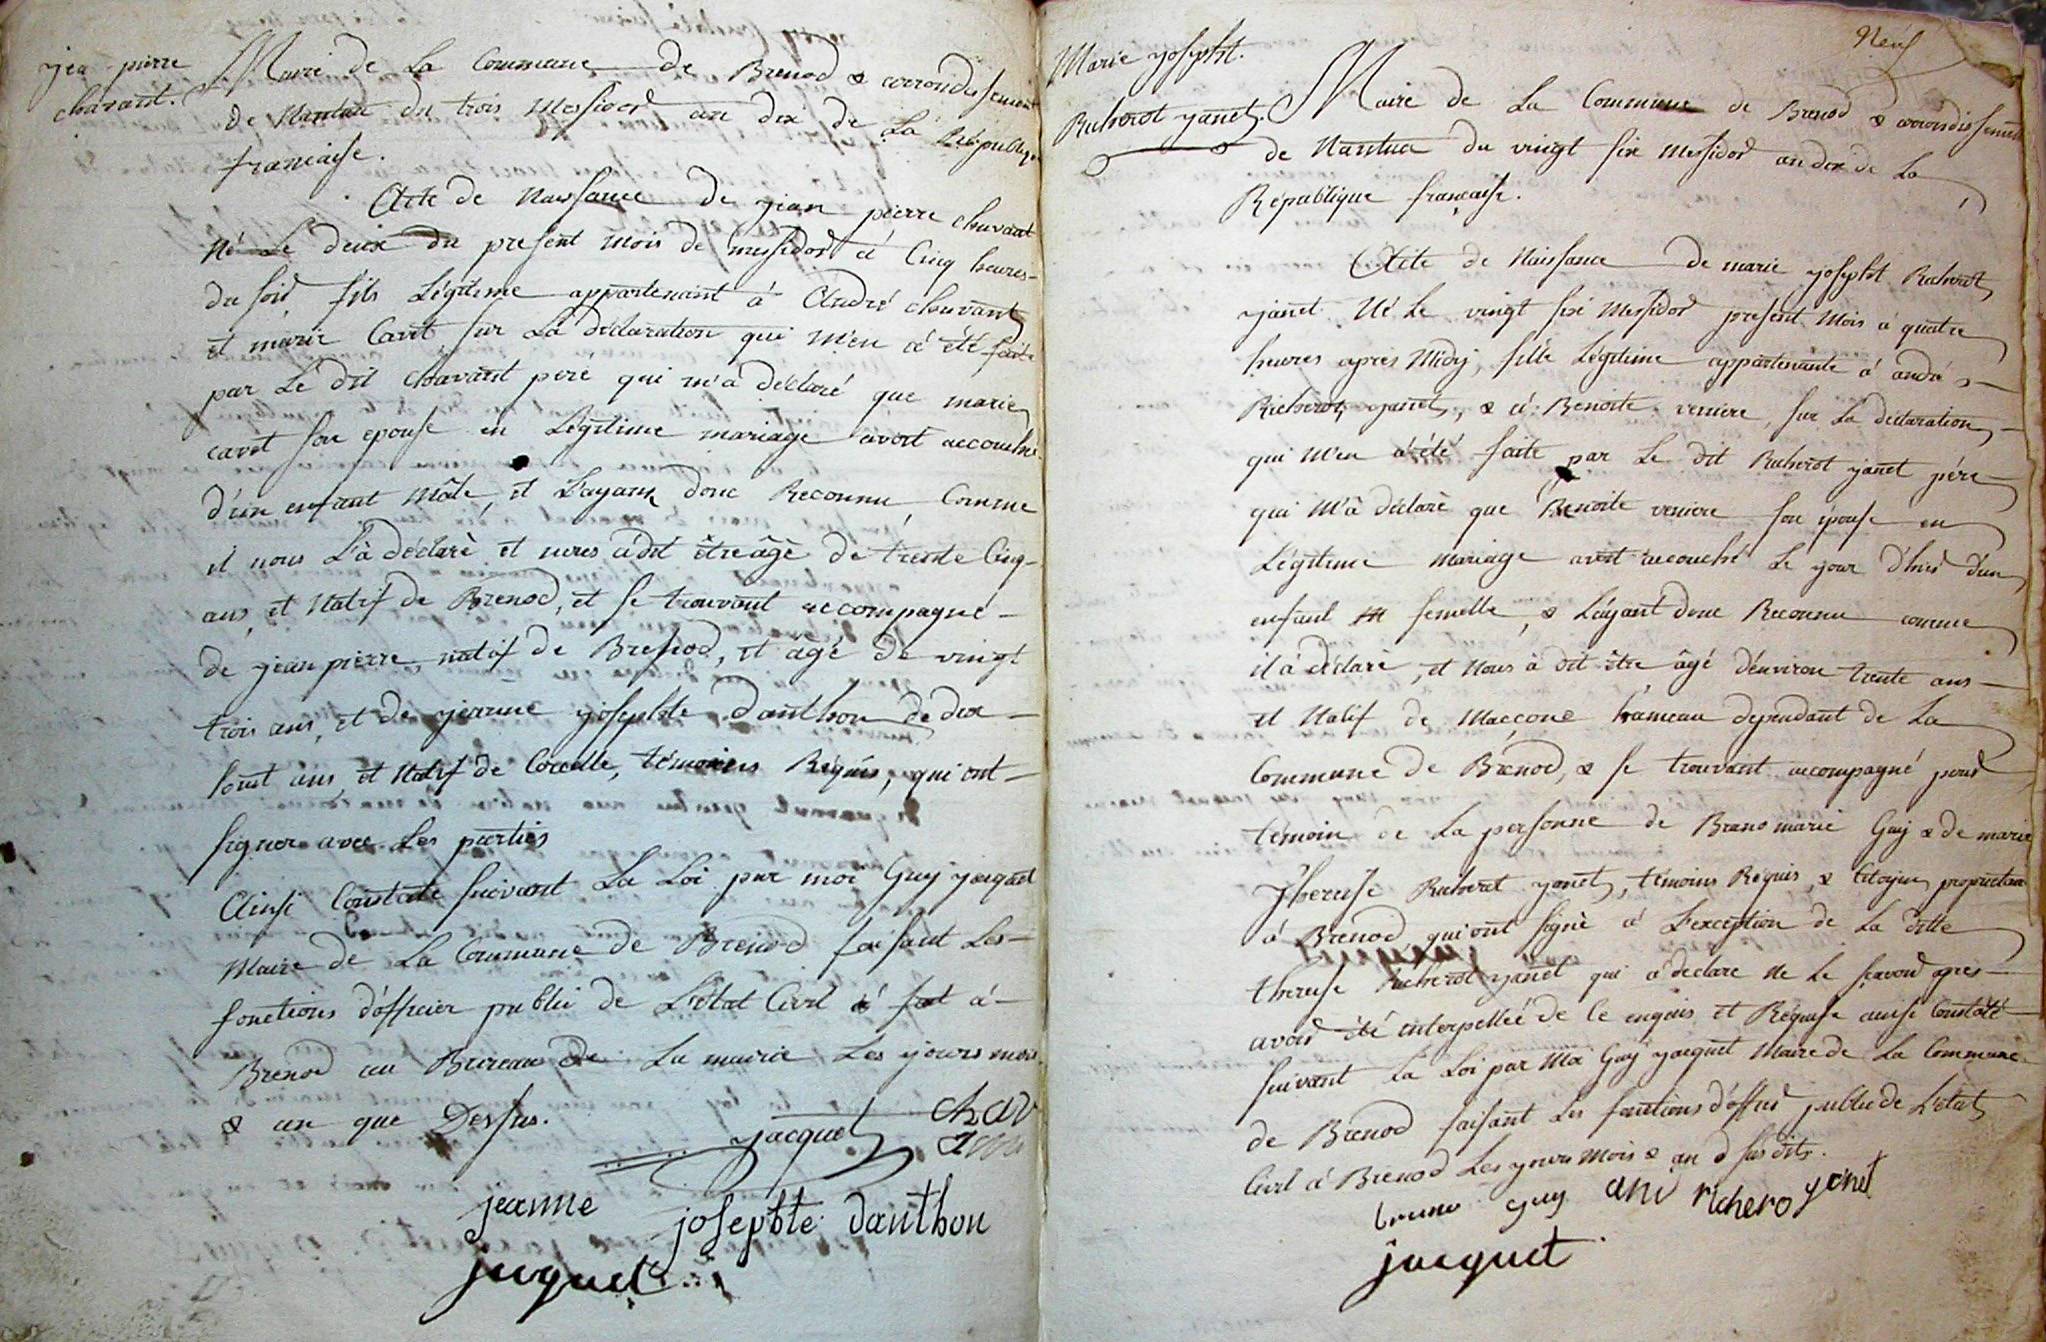 jea pierre
chavant.
Maire de La Commune de Brenod & arrondissement
de Nantua du trois Messidor an dix de La République
francaise.
Acte de Naissance de jean pierre chavant
Né Le deux du present mois de messidor à Cinq heures
du soir, fils Légitime appartenant à André chavant
et marie Cavet, sur La déclaration qui m'en à été faite
par Le dit chavant péré qui m'a déclaré que marie
cavet son epouse en Légitime mariage avoit accouché
d'un enfant Mâle, et L'ayant donc Reconnu, Comme
il nous L'à déclarè et nous à dit être âgè de trente Cinq
ans, et Natif de Brenod, et se trouvant accompagné
de jean pierre natif de Brenod, et agé de vingt
trois ans, et de jeanne josephte Danthon de dix
sept ans, et Natif de Corcelle, témoins Réquis, qui ont
signer avec Les parties
Ainsi Constaté suivant La Loi par moi Guy jacquet
Maire de La Commune de Brenod faisant Les
fonctions d'officier public de L'état Civil à
Brenod au Bureau de La mairie Les jours mois
& an que Dessus.
jacquet chav
jeanne josephte danthon
juquet
Neuf
Marie josepht.
Ruherot janet.
Maire de La Commune de Brenod & arrondissement
de Nantua du vingt six messidor an dix de La
République française.
Acte de Naissance de marie josepht Ruherot
janet Né Le vingt six messidor present Mois à quatre
heures après Midy, fille Légitime appartenante à andré
Richerot janet, & à Benoite veniere, sur La déclaration
qui M'en à été faite par Le dit Ruherot janet pére
qui M'à déclarè que Benoite veniere son épouse en
Légitime mariage avoit accouché Le jour d'hier d'un
enfant femelle, & L'ayant donc Reconnu comme
il à déclarè, et Nous à dit être âgé d'environ trente ans
et Natif de Macçone hameau dependant de La
Commune de Brenod, & se trouvant accompagné pour
témoin de La personne de Bruno marie Guy & de marie
Therese Ruherot janet, témoins Réquis, & Citoyens proprietaire
à Brenod qui ont signè à L'exception de La ditte
therese Richerot janet qui à declare ne Le scavoir apres
avoir été interpellée de Ce enquis et Réquise ainsi Constaté
suivant La Loi par Moi Guy jacquet Maire de La Commune
de Brenod faisant Les fonctions d'offier public de L'état
Civil à Brenod Les jours Mois & an d sus dits.
bruno guy and richero yanet
jacquet